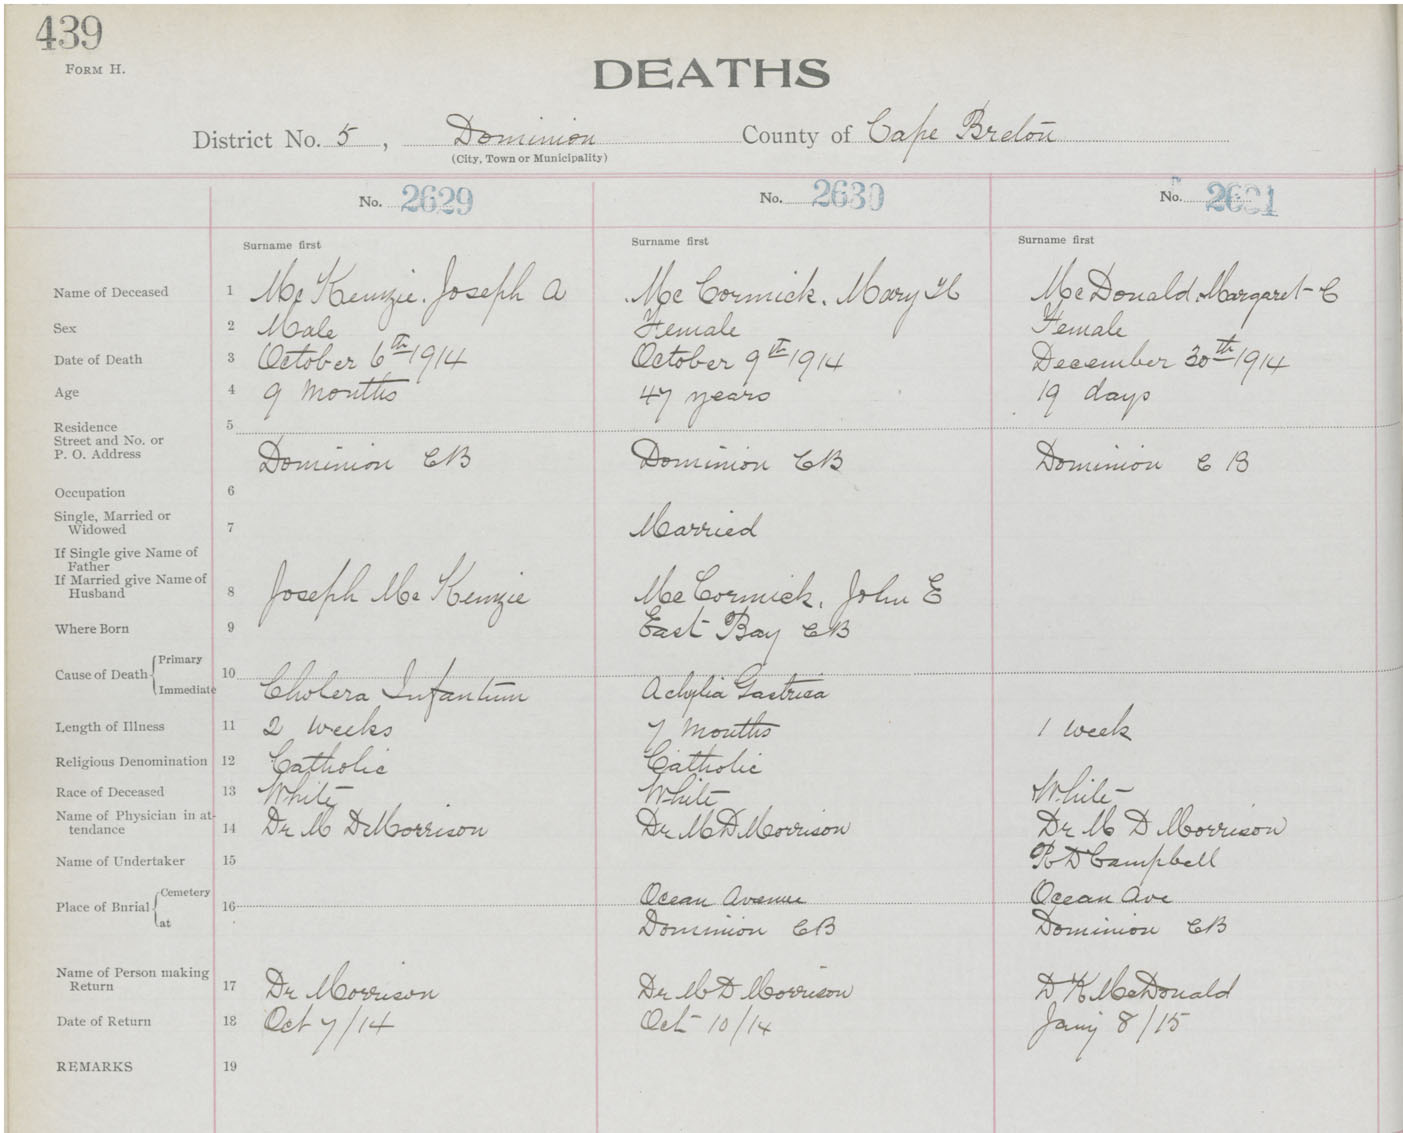 439
FORM H.
DEATHS
District No. 5, Dominion County of Cape Breton
(City, Town or Municipality)
No. 2629 No. 2630 No.
Surname first Surname first Surname first
Name of Deceased 1 McKenzie. Joseph A McCormick. Mary H McDonald. Margaret C
Sex 2 Male Female Female
Date of Death 3 October 6th 1914 October 9th 1914 December 30th 1914
Age 4 9 months 47 years 19 days
Residence 5
Street and No. or
P. O. Address Dominion CB Dominion CB Dominion C B
Occupation 6
Single, Married or
Widowed 7 Married
If Single give Name of
Father
If Married give Name of
Husband 8 Joseph McKenzie McCormick. John E
Where Born 9 East Bay CB
Cause of Death Primary 10
Immediate Cholera Infantum Achylia Gastrica
Length of Illness 11 2 weeks 7 months 1 week
Religious Denomination 12 Catholic Catholic
Race of Deceased 13 White White White
Name of Physician in at-
tendance 14 Dr M D Morrison Dr M D Morrison Dr M D Morrison
Name of Undertaker 15 R D Campbell
Place of Burial Cemetery 16 Ocean Avenue Ocean Ave
at Dominion CB Dominion CB
Name of Person making
Return 17 Dr Morrison Dr M D Morrison D K McDonald
Date of Return 18 Oct 7/14 Oct 10/14 Jany 8/15
REMARKS 19